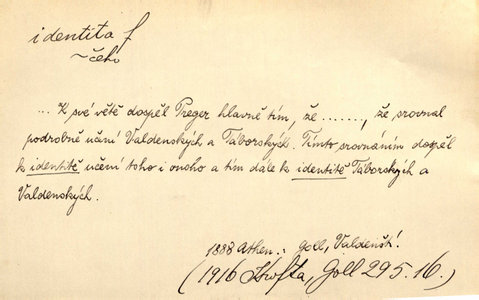 identita f
~ čeho
... K své větě dospěl Preger hlavně tím, že ......., že srovnal
podrobně učení Valdenských a Táborských. Tímto srovnáním dospěl
k identitě učení toho i onoho a tím dále k identitě Táborských a
Valdenských.
1888 Athen.: Goll, Valdenští.
(1916 Krofta, Goll 295. 16.)